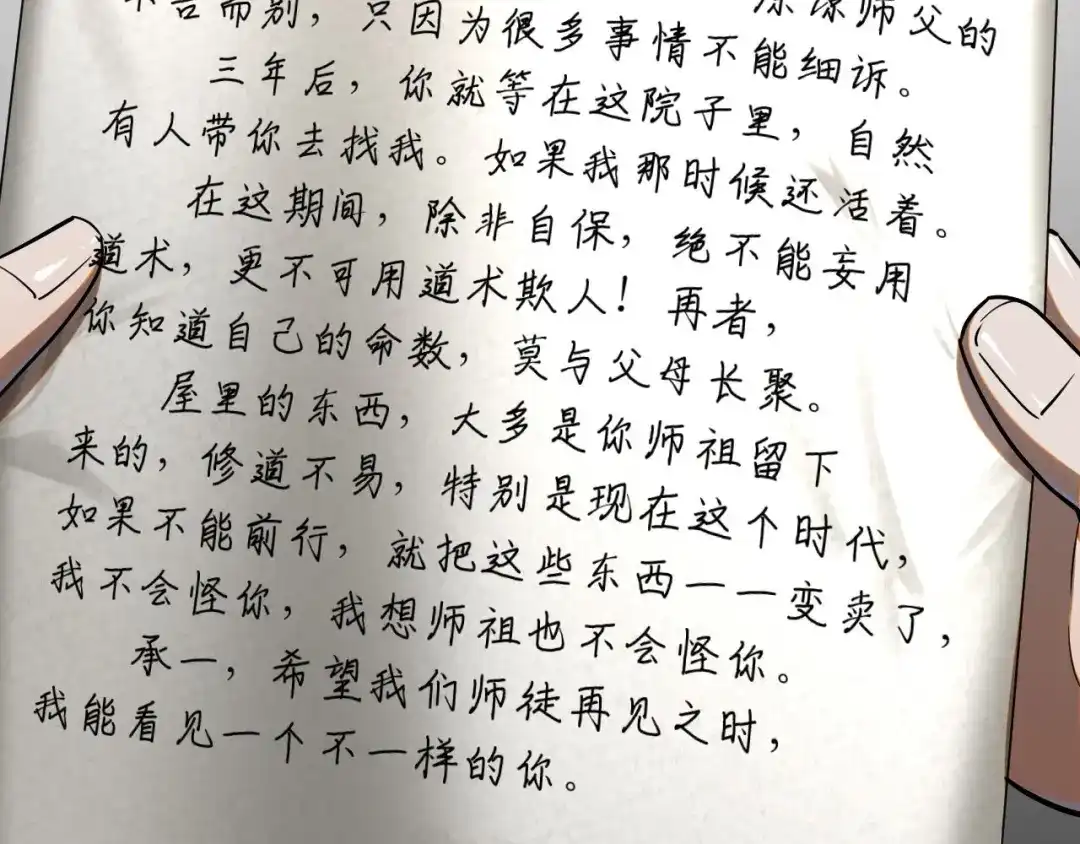 不告而别，只因为很多事情不能细诉。 原谅师父的
三年后，你就等在这院子里，自然
有人带你去找我。如果我那时候还活着。
在这期间，除非自保，绝不能妄用
道术，更不可用道术欺人！再者，
你知道自己的命数，莫与父母长聚。
屋里的东西，大多是你师祖留下
来的，修道不易，特别是现在这个时代，
如果不能前行，就把这些东西一一变卖了，
我不会怪你，我想师祖也不会怪你。
承一，希望我们师徒再见之时，
我能看见一个不一样的你。